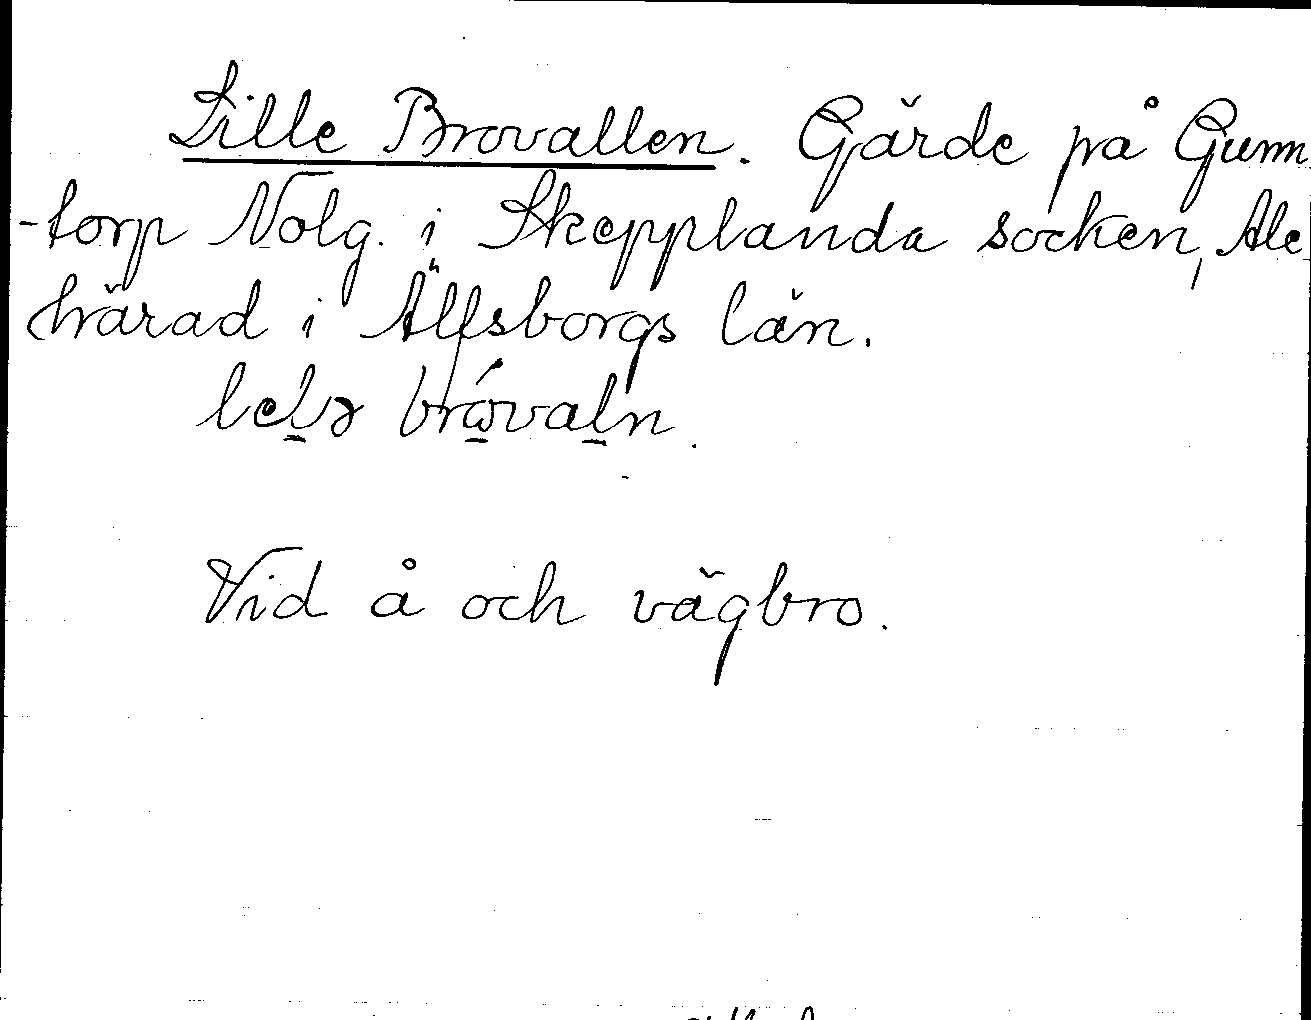 Lille Brovallen. Gärde på Gunn
-torp Nolg. i Skepplanda socken, Ale
härad i Älfsborgs län.
lelə brovaln.
Vid å och vägbro.